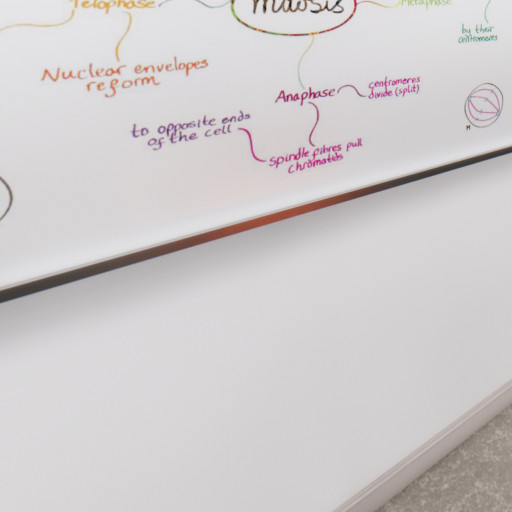 Telophase
Metaphase
by their
centromeres
Nuclear envelopes
reform
Anaphase
centromeres
divide (split)
to opposite ends
of the cell
spindle fibres pull
chromatids
M